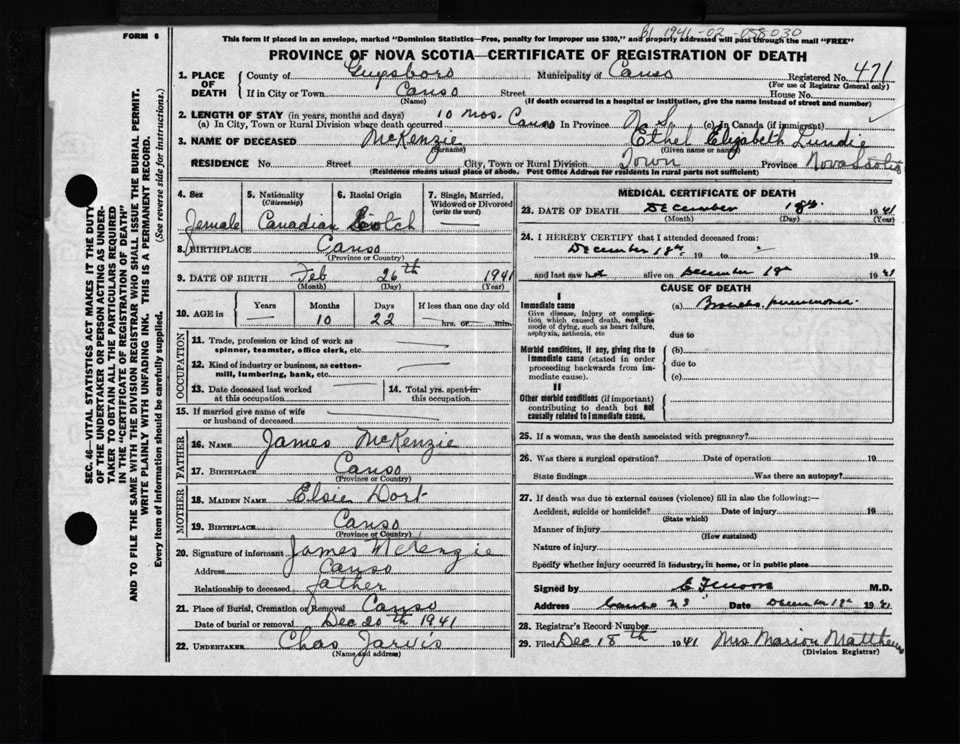 FORM 6
This form if placed in an envelope, marked "Dominion Statistics—Free, penalty for improper use $300," and properly addressed will pass through the mail "FREE"
1941-02-058030
PROVINCE OF NOVA SCOTIA—CERTIFICATE OF REGISTRATION OF DEATH
1. PLACE OF DEATH
County of Guysboro Municipality of Canso Registered No. 471
(For use of Registrar General only)
If in City or Town Canso Street House No.
(Name) (If death occurred in a hospital or institution, give the name instead of street and number)
2. LENGTH OF STAY (in years, months and days)
(a) In City, Town or Rural Division where death occurred 10 mos. Canso In Province N.S. (c) In Canada (if immigrant)
3. NAME OF DECEASED McKenzie Ethel Elizabeth Lundie
(Surname) (Given name or names)
RESIDENCE No. Street City, Town or Rural Division Town Province Nova Scotia
(Residence means usual place of abode. Post Office Address for residents in rural parts not sufficient)
4. Sex Female
5. Nationality (Citizenship) Canadian
6. Racial Origin Scotch
7. Single, Married, Widowed or Divorced (write the word)
8. BIRTHPLACE Canso
(Province or Country)
9. DATE OF BIRTH Feb 26th 1941
(Month) (Day) (Year)
10. AGE in Years Months 10 Days 22 If less than one day old hrs. or min.
OCCUPATION
11. Trade, profession or kind of work as spinner, teamster, office clerk, etc.
12. Kind of industry or business, as cotton-mill, lumbering, bank, etc.
13. Date deceased last worked at this occupation
14. Total yrs. spent in this occupation
15. If married give name of wife or husband of deceased
FATHER
16. NAME James McKenzie
17. BIRTHPLACE Canso
(Province or Country)
MOTHER
18. MAIDEN NAME Elsie Dort
19. BIRTHPLACE Canso
(Province or Country)
20. Signature of informant James McKenzie
Address Canso
Relationship to deceased father
21. Place of Burial, Cremation or Removal Canso
Date of burial or removal Dec 20th 1941
22. UNDERTAKER Chas Jarvis
(Name and address)
MEDICAL CERTIFICATE OF DEATH
23. DATE OF DEATH December 18th 1941
(Month) (Day) (Year)
24. I HEREBY CERTIFY that I attended deceased from:
December 18th, 19 to 19
and last saw her alive on December 18th 1941
CAUSE OF DEATH
I
Immediate cause (a) Broncho pneumonia
Give disease, injury or complication which caused death, not the mode of dying, such as heart failure, asphyxia, asthenia, etc
due to
Morbid conditions, if any, giving rise to immediate cause (stated in order proceeding backwards from immediate cause).
(b)
due to
(c)
II
Other morbid conditions (if important) contributing to death but not causally related to immediate cause.
25. If a woman, was the death associated with pregnancy?
26. Was there a surgical operation? Date of operation 19
State findings Was there an autopsy?
27. If death was due to external causes (violence) fill in also the following:—
Accident, suicide or homicide? Date of injury 19
(State which)
Manner of injury
(How sustained)
Nature of injury
Specify whether injury occurred in industry, in home, or in public place
Signed by M.D.
Address Canso N S Date December 18th 1941
28. Registrar's Record Number
29. Filed Dec 18th 1941 Mrs Marion Matthews
(Division Registrar)
SEC. 46—VITAL STATISTICS ACT MAKES IT THE DUTY
OF THE UNDERTAKER OR PERSON ACTING AS UNDER-
TAKER TO OBTAIN ALL THE PARTICULARS REQUIRED
IN THE "CERTIFICATE OF REGISTRATION OF DEATH"
AND TO FILE THE SAME WITH THE DIVISION REGISTRAR WHO SHALL ISSUE THE BURIAL PERMIT.
WRITE PLAINLY WITH UNFADING INK. THIS IS A PERMANENT RECORD.
Every item of Information should be carefully supplied. (See reverse side for instructions.)